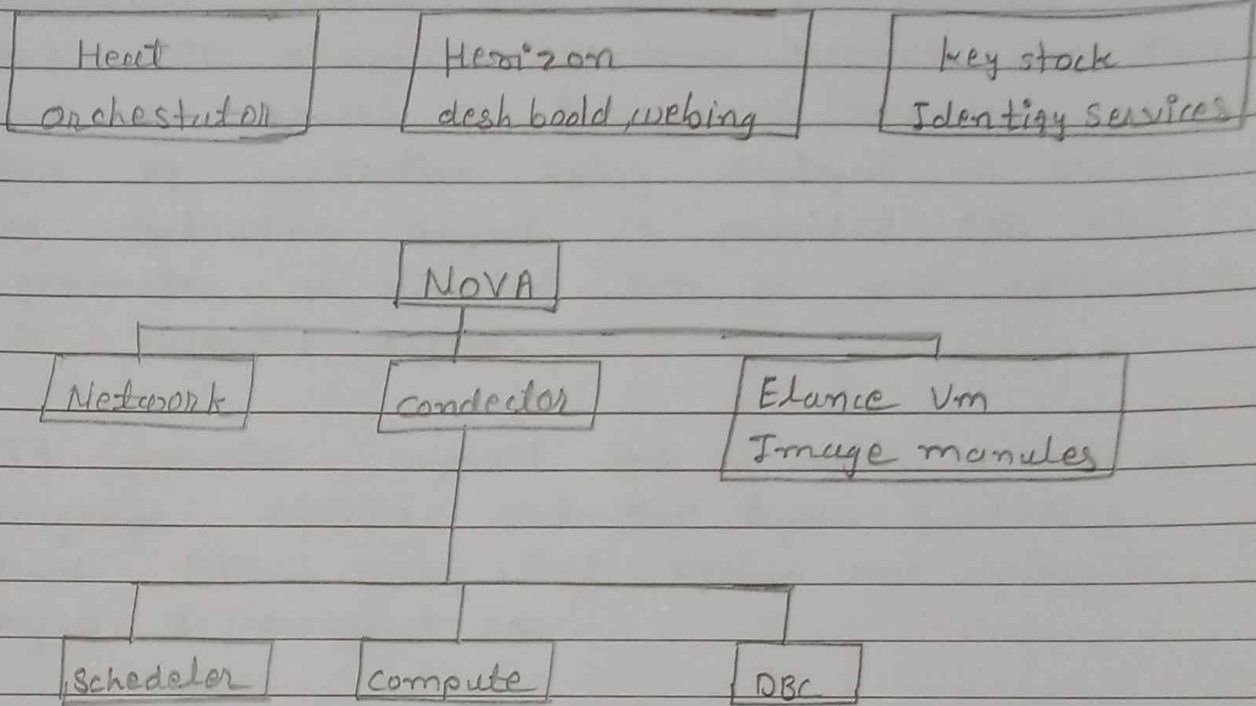 Heat
orchestutor
Horizon
desh boald, webing
key stock
Identity services
NOVA
Network
condector
Elance Vm
Image manules
schedeler
compute
DBC